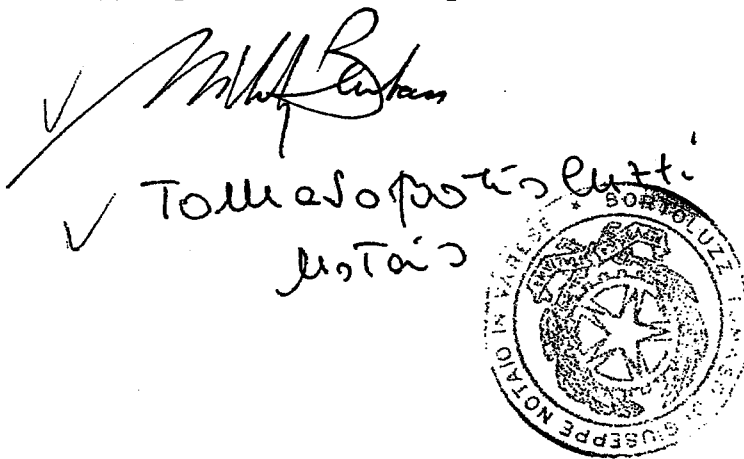 Tomaso Bortoluzzi
Notaio
BORTOLUZZI TOMASO DI GIUSEPPE NOTAIO IN VARESE